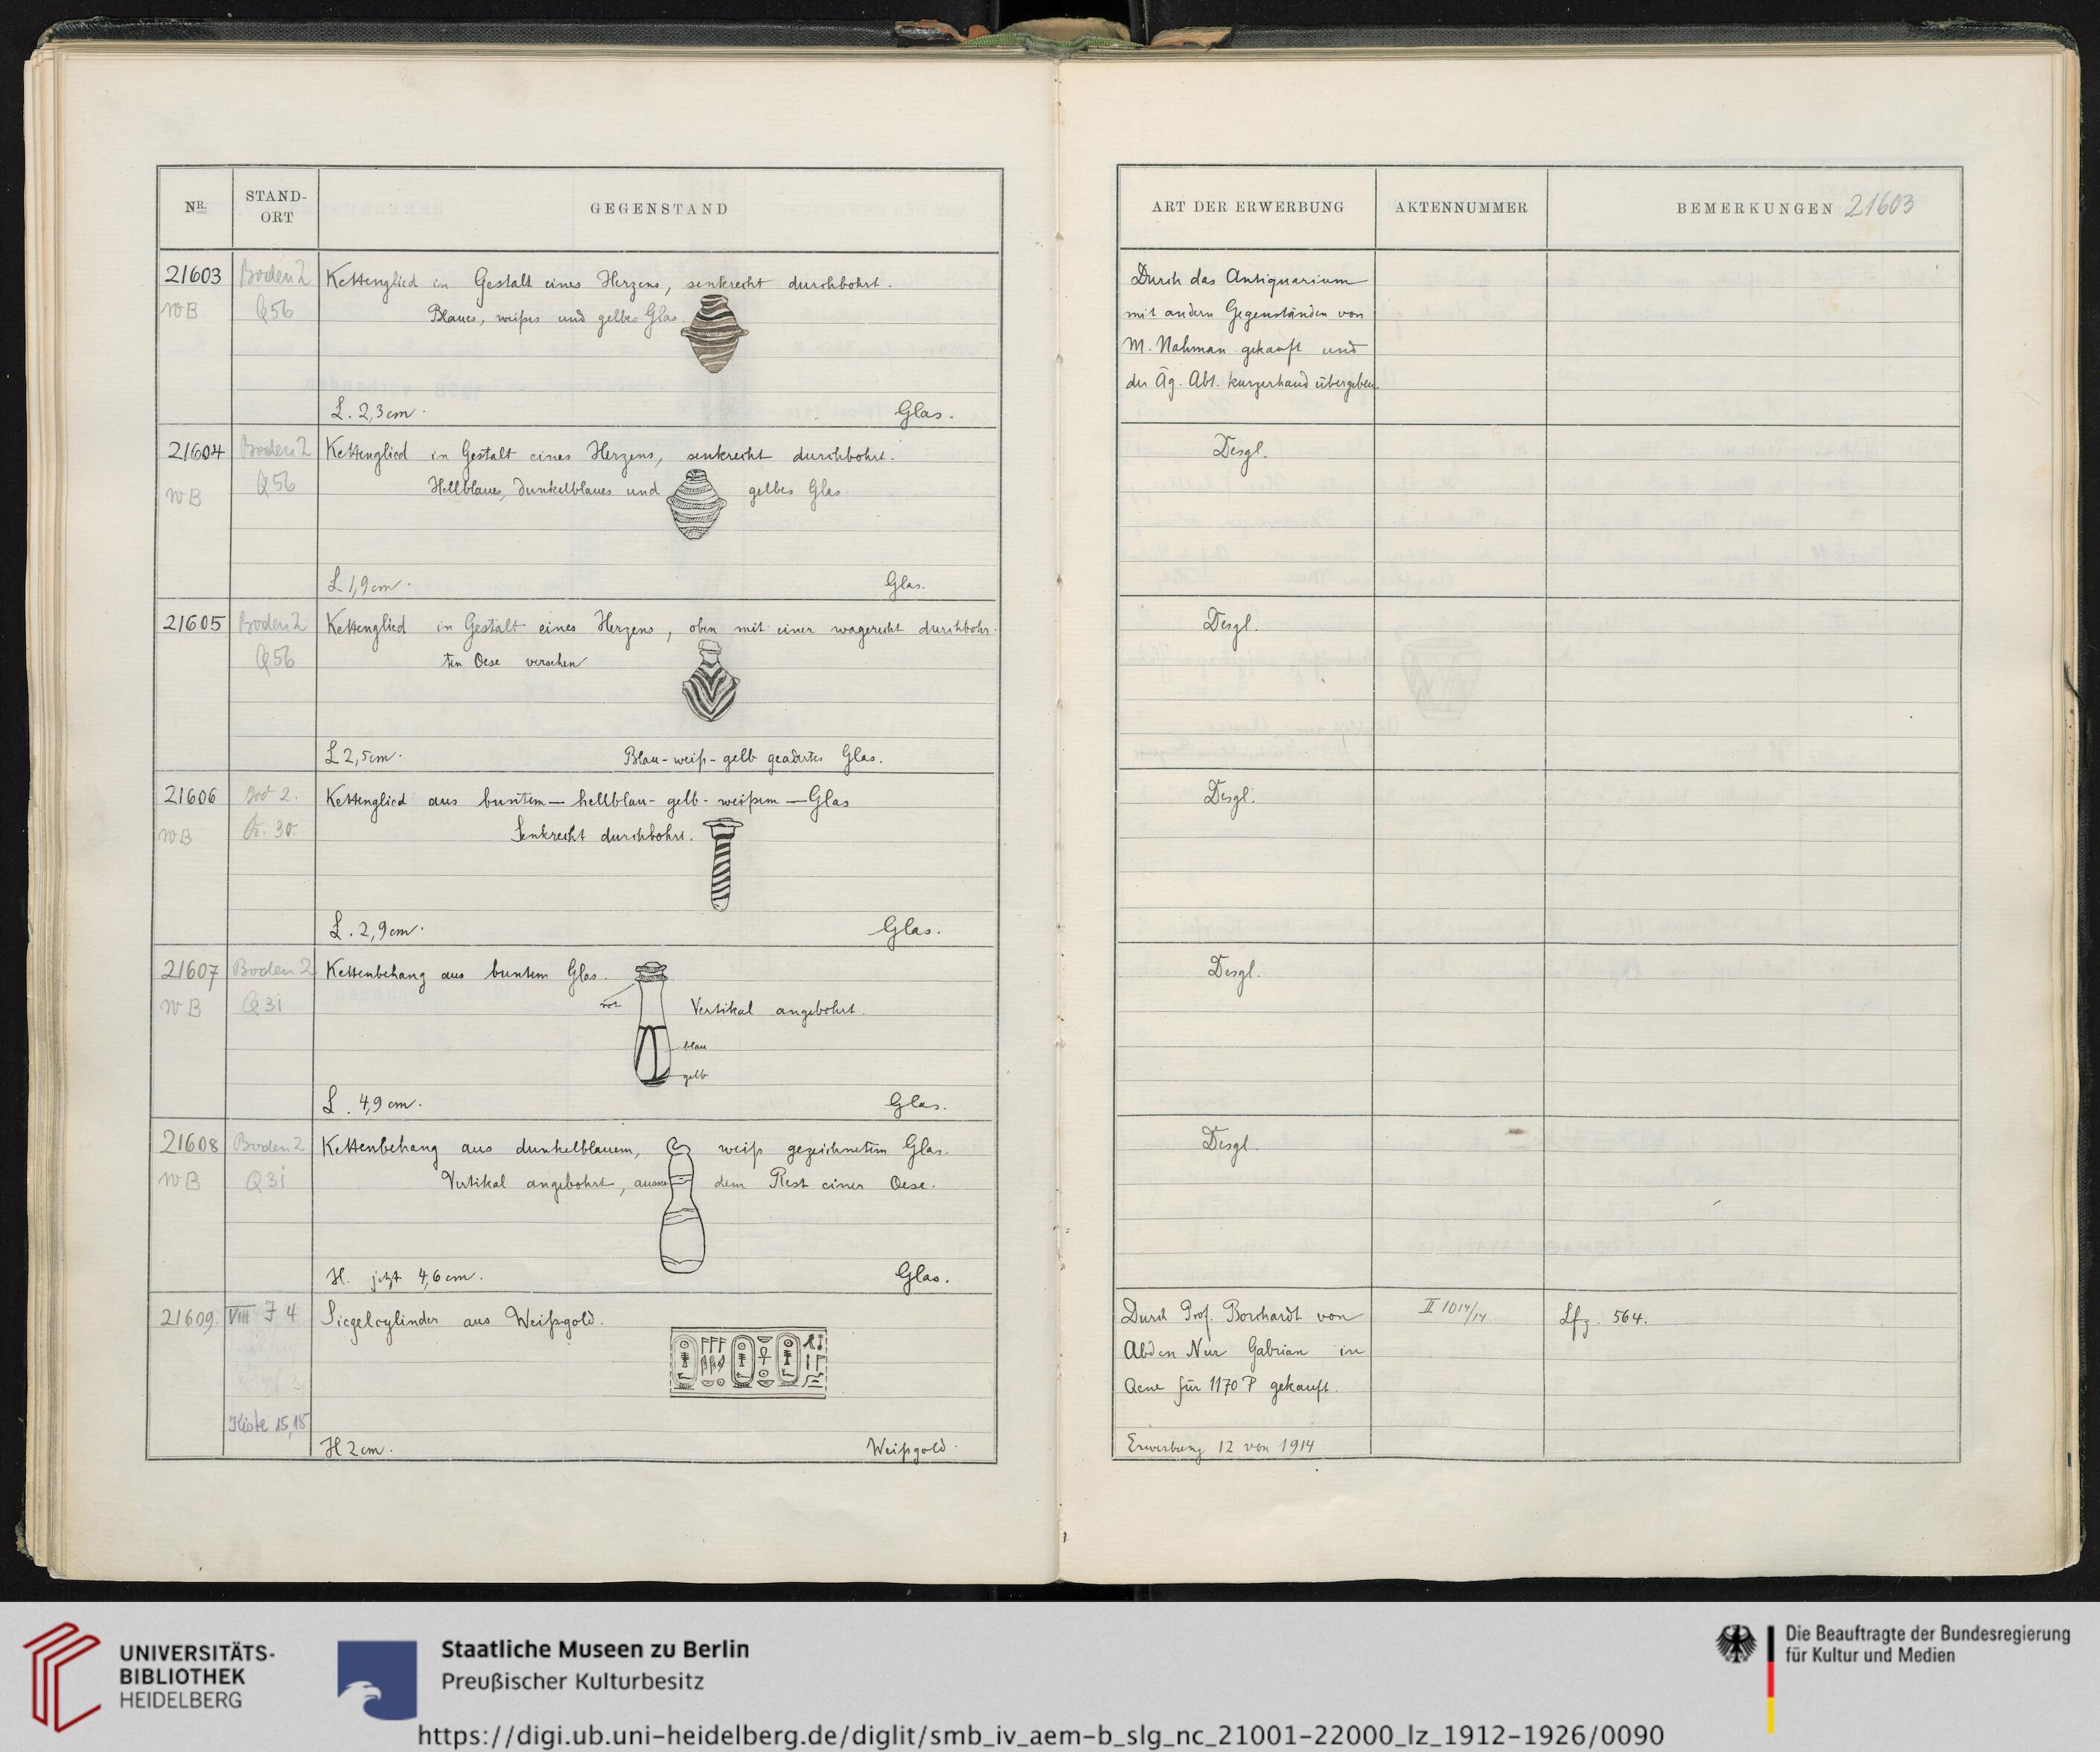 NR. STAND-ORT GEGENSTAND
21603 Boden 2 Kettenglied in Gestalt eines Herzens, senkrecht durchbohrt.
WB Q56 Blaues, weißes und gelbes Glas.
L. 2,3 cm. Glas.
21604 Boden 2 Kettenglied in Gestalt eines Herzens, senkrecht durchbohrt.
WB Q56 Hellblaues, dunkelblaues und gelbes Glas.
L. 1,9 cm. Glas.
21605 Boden 2 Kettenglied in Gestalt eines Herzens, oben mit einer wagerecht durchbohr-
Q56 ten Oese versehen
L 2,5 cm. Blau-weiß-gelb geadertes Glas.
21606 Bod 2. Kettenglied aus buntem — hellblau-gelb-weißem — Glas
WB 30. Senkrecht durchbohrt.
L. 2,9 cm. Glas.
21607 Boden 2 Kettenbehang aus buntem Glas.
WB Q3i rot Vertikal angebohrt.
blau
gelb
L. 4,9 cm. Glas.
21608 Boden 2 Kettenbehang aus dunkelblauem, weiß gezeichnetem Glas.
WB Q3i Vertikal angebohrt, ausser dem Rest einer Oese.
H. jetzt 4,6 cm. Glas.
21609. VIII J 4 Siegelcylinder aus Weißgold.
Kiste 15,18
H 2 cm. Weißgold.
ART DER ERWERBUNG AKTENNUMMER BEMERKUNGEN 21603
Durch das Antiquarium
mit andern Gegenständen von
M. Nahman gekauft und
der Äg. Abt. kurzerhand übergeben
Desgl.
Desgl.
Desgl.
Desgl.
Desgl.
Durch Prof. Borchardt von II 1014/14 Lfz. 564.
Abden Nur Gabrian in
Qene für 1170 P gekauft.
Erwerbung 12 von 1914
UNIVERSITÄTS-
BIBLIOTHEK
HEIDELBERG
Staatliche Museen zu Berlin
Preußischer Kulturbesitz
Die Beauftragte der Bundesregierung
für Kultur und Medien
https://digi.ub.uni-heidelberg.de/diglit/smb_iv_aem-b_slg_nc_21001-22000_lz_1912-1926/0090